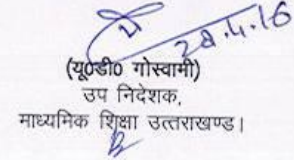 28.4.16
(यू0डी0 गोस्वामी)
उप निदेशक,
माध्यमिक शिक्षा उत्तराखण्ड।